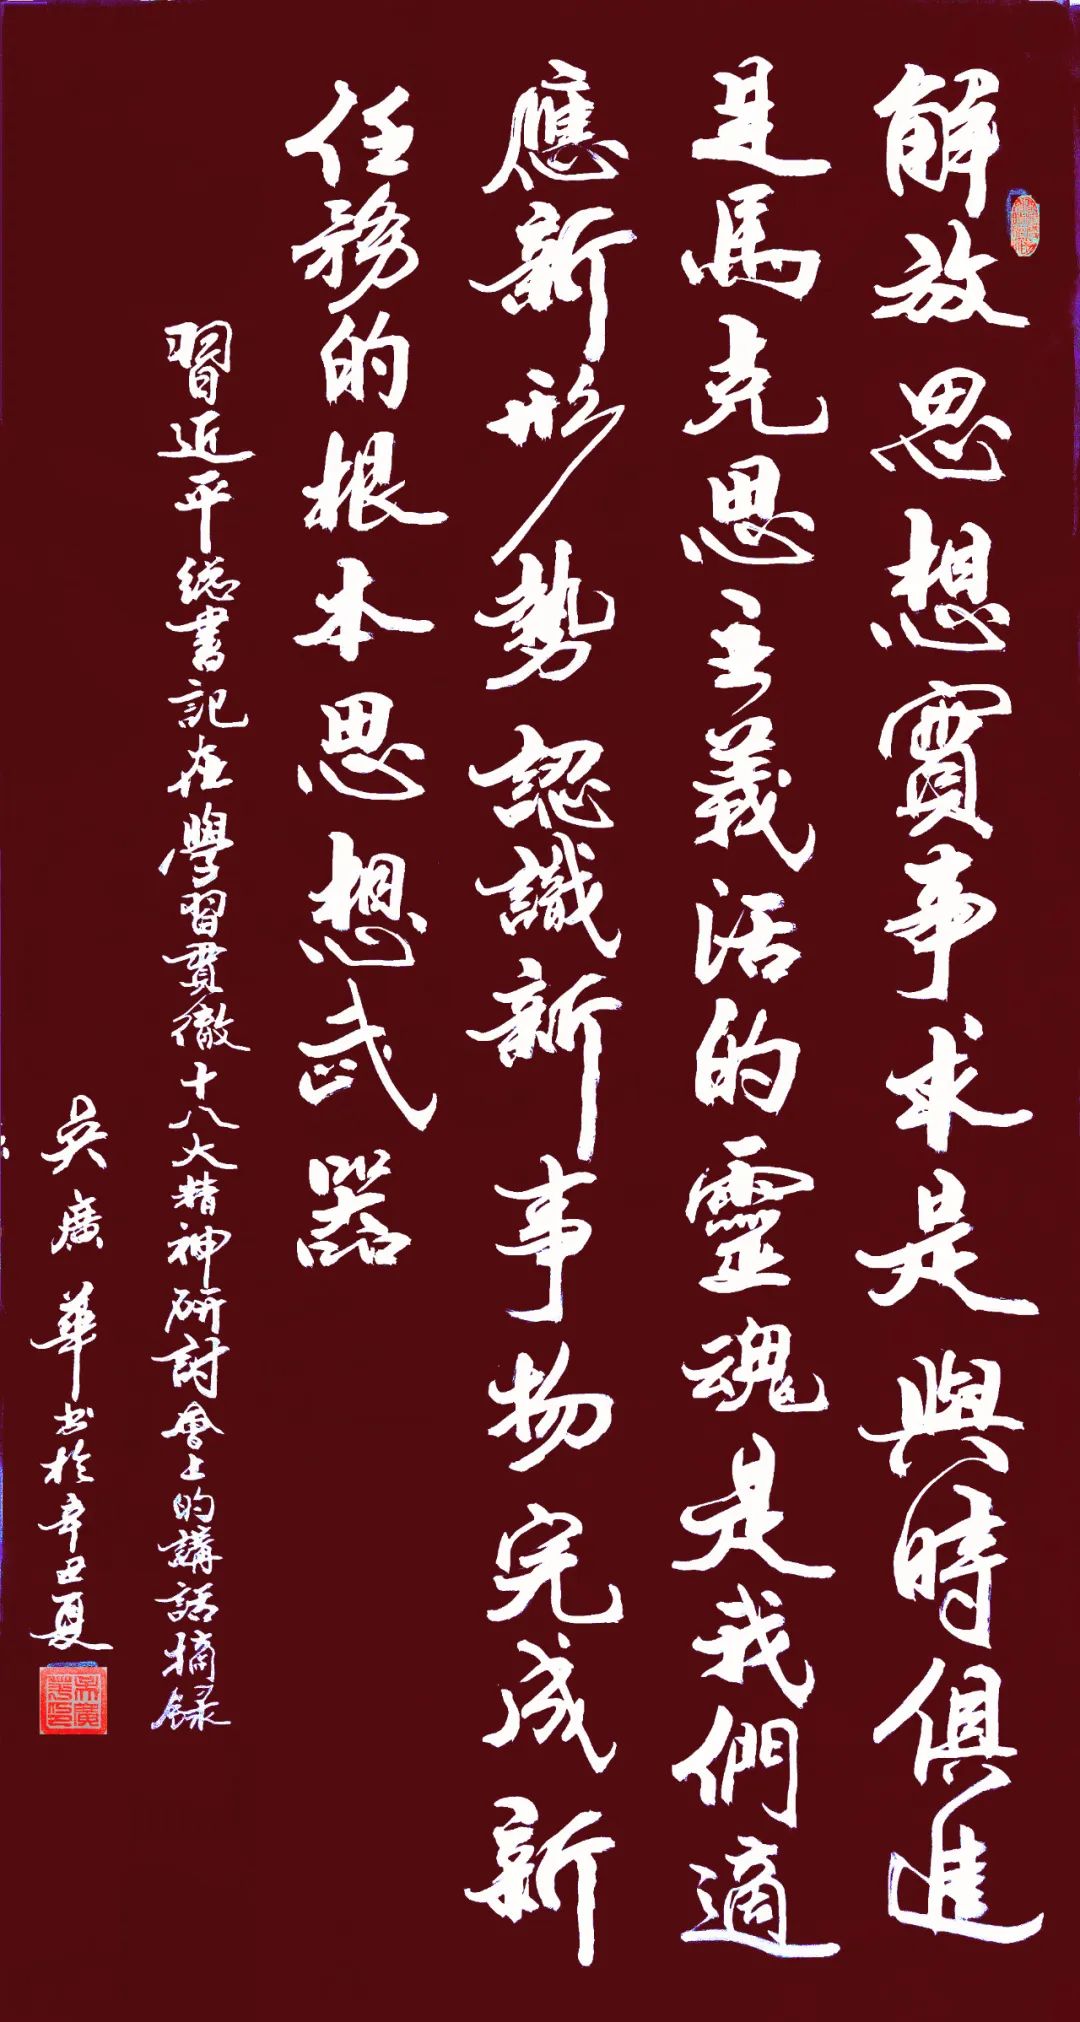 解放思想實事求是與時俱進
是馬克思主義活的靈魂是我們適
應新形勢認識新事物完成新
任務的根本思想武器
習近平總書記在學習貫徹十八大精神研討會上的講話摘録
吳廣華书於辛丑夏